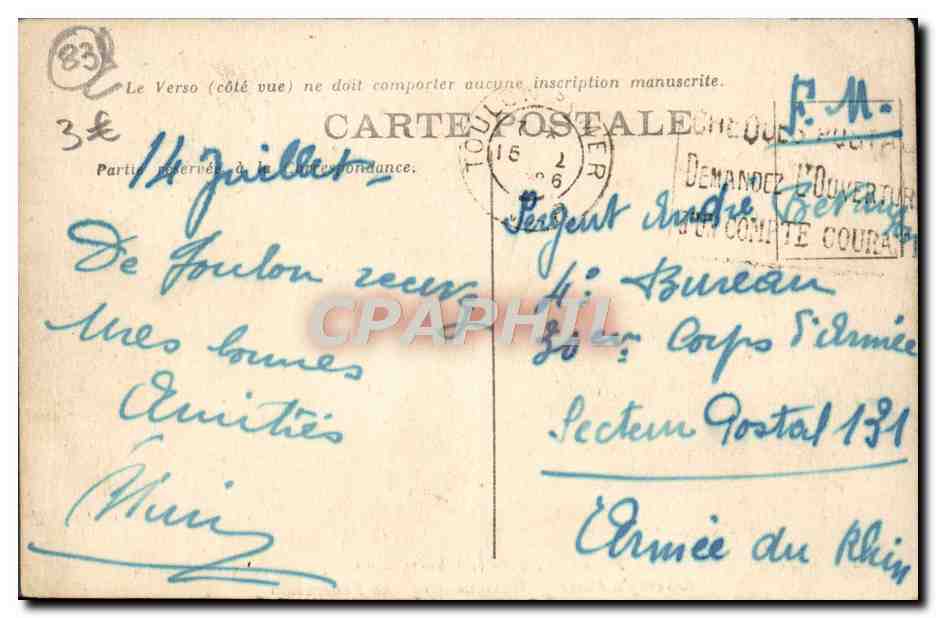 83
Le Verso (côté vue) ne doit comporter aucune inscription manuscrite.
3€
CARTE POSTALE
Partie réservée à la Correspondance.
14 Juillet_
De Toulon recevez
Mes bonnes
Amitiés
F. M.
TOULON VAR
15
CHEQUES POSTAUX
DEMANDEZ L'OUVERTURE
D'UN COMPTE COURANT
Sergent André
4e Bureau
30ème Corps d'Armée
Secteur Postal 131
Armée du Rhin
CPAPHIL